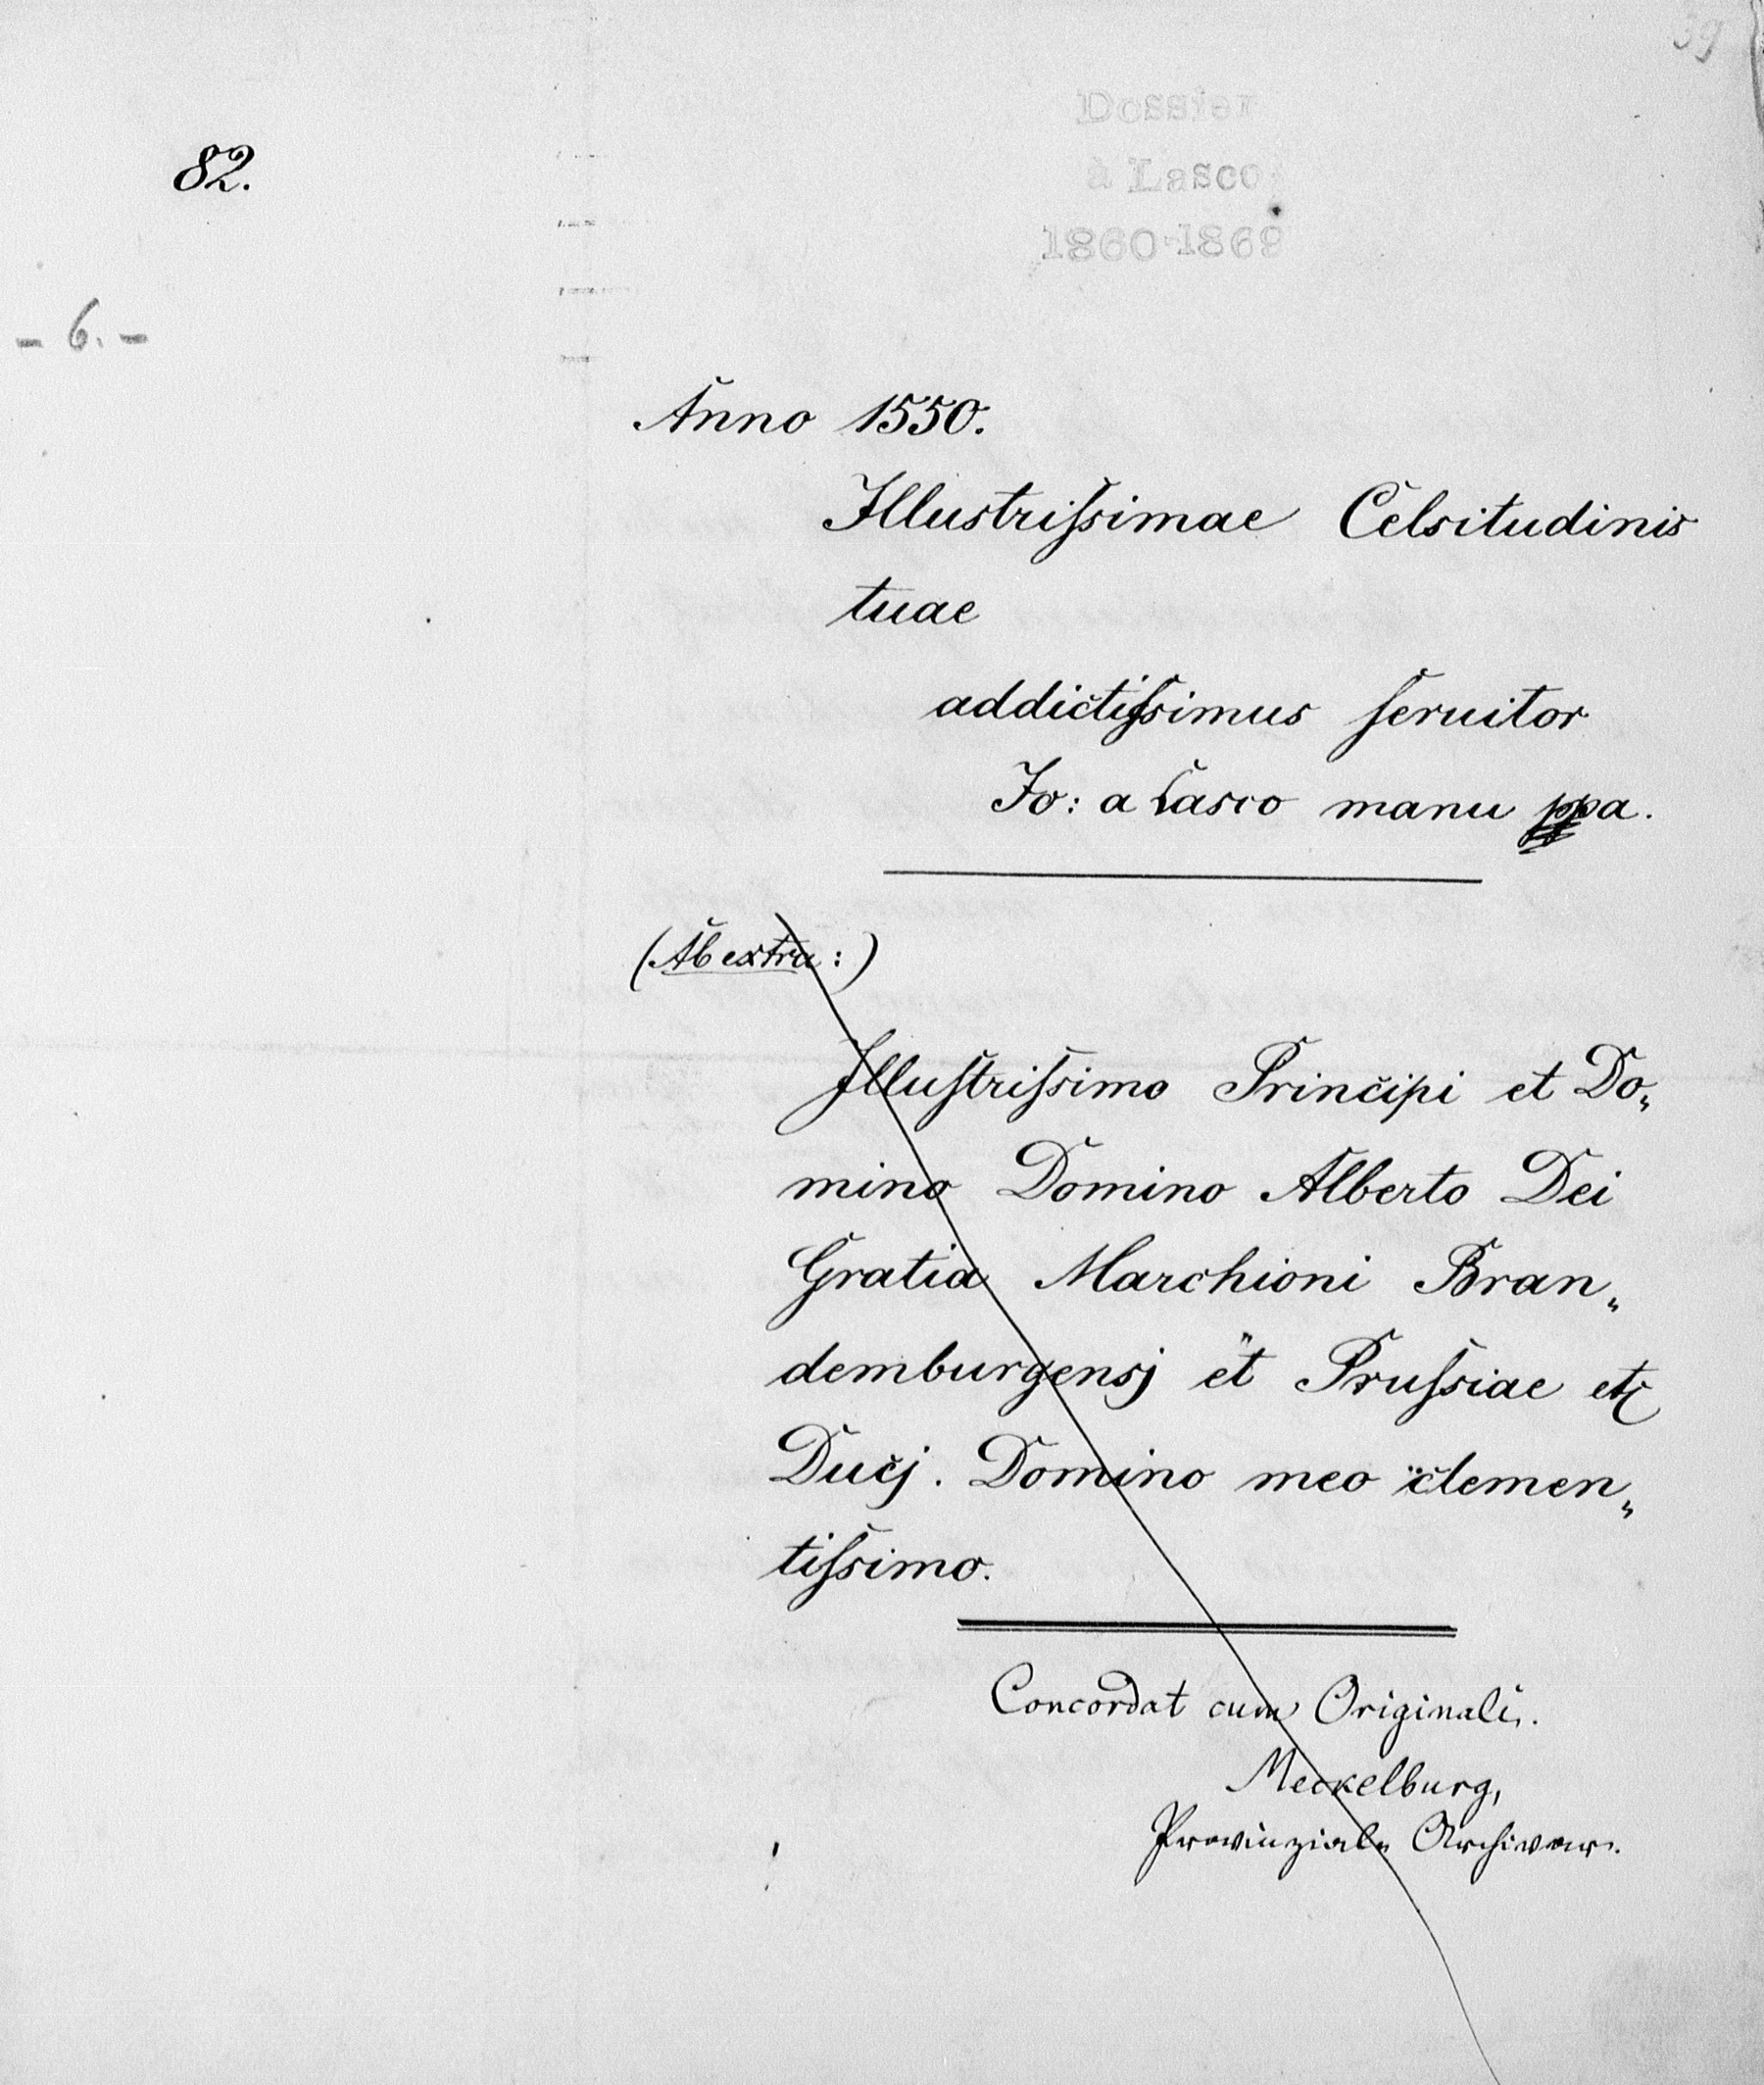 39
Dossier
à Lasco
1860-1869
82.
- 6. -
Anno 1550.
Illustriſsimae Celsitudinis
tuae
addictiſsimus ſeruitor
Jo: a Lasco manu ppa.
(Ab extra:)
Illuſtriſsimo Principi et Do„
mino Domino Alberto Dei
Gratia Marchioni Bran„
demburgensj et Pruſsiae etc
Ducj. Domino meo clemen„
tiſsimo.
Concordat cum Originali.
Meckelburg,
Provinzial-Archivar.